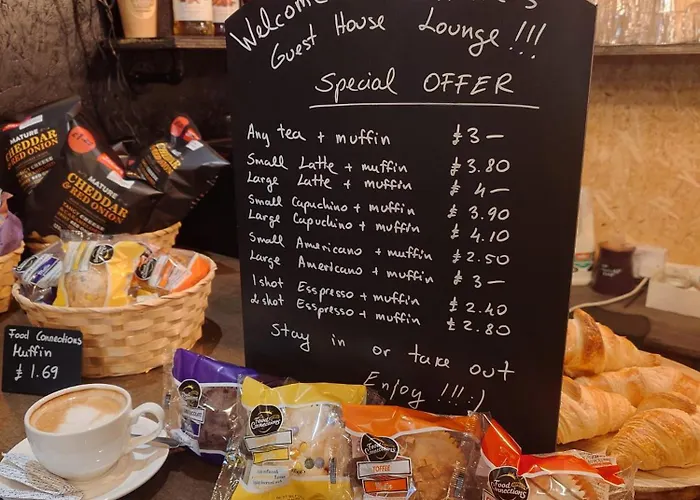 Welcome
Guest House Lounge!!!
Special OFFER
Any tea + muffin £3-
Small Latte + muffin £3.80
Large Latte + muffin £4-
Small Capuchino + muffin £3.90
Large Capuchino + muffin £4.10
Small Americano + muffin £2.50
Large Americano + muffin £3-
1 shot Esspresso + muffin £2.40
2 shot Esspresso + muffin £2.80
Stay in or take out
Enjoy!!!:)
MATURE
CHEDDAR
& RED ONION
MATURE
CHEDDAR
& RED ONION
Food Connections
Muffin
£1.69
Food
Connections
Food
Connections
TOFFEE
Food
Connections